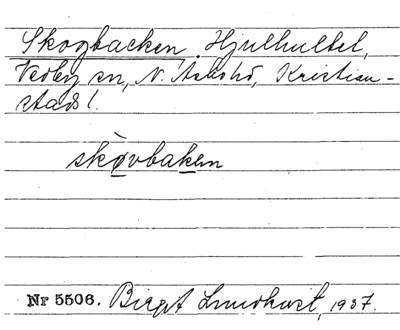 Skogbacken. Hjulhultet,
Vedby sn, N. Åsbo hd, Kristian-
stads l.
skòvbaken
Nr 5506. Birgit Lundkvist, 1937.